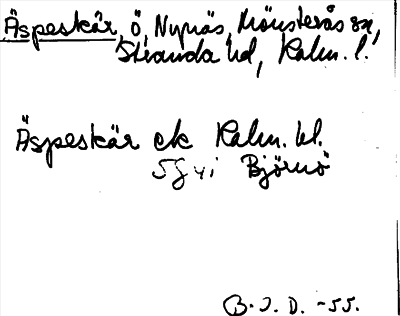 Äspeskär, ö, Nynäs, Mönsterås sn,
Stranda hd, Kalm. l.
Äspeskär ek Kalm. bl.
5g vi Björnö
B.I.D. -55.